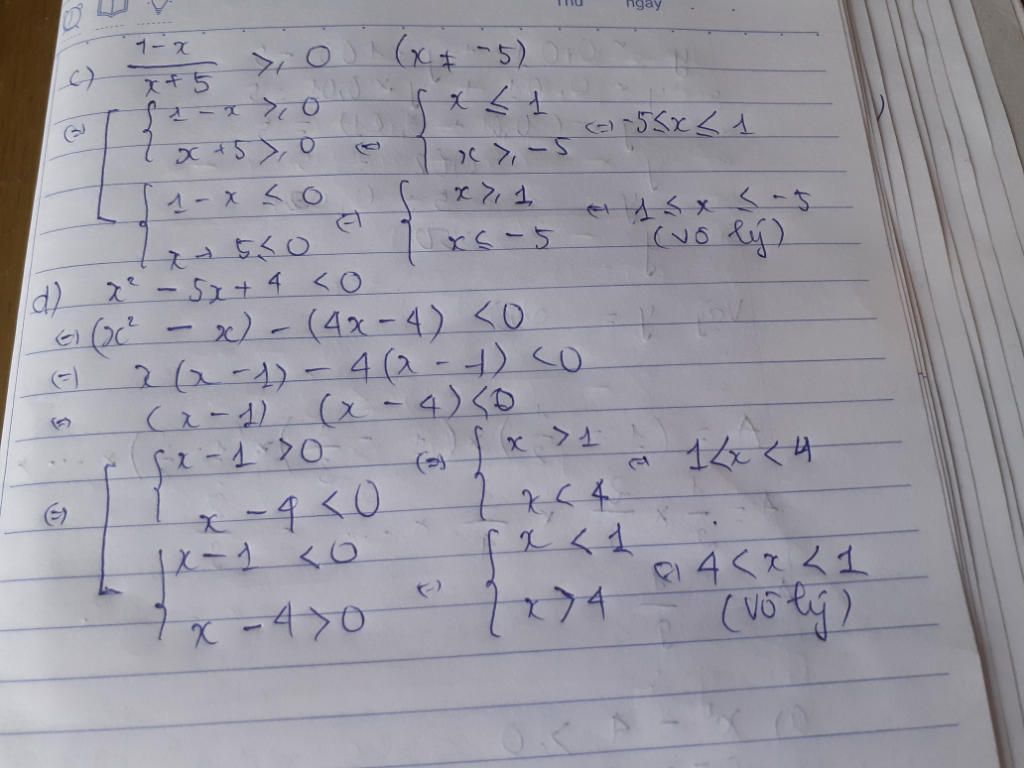 Thứ ngày
c) \frac{1-x}{x+5} ≥ 0 (x ≠ -5)
⇔ [ { 1 - x ≥ 0 ⇔ { x ≤ 1 ⇔ -5 ≤ x ≤ 1
x + 5 ≥ 0 x ≥ -5
{ 1 - x ≤ 0 ⇔ { x ≥ 1 ⇔ 1 ≤ x ≤ -5
x + 5 ≤ 0 x ≤ -5 (vô lý)
d) x² - 5x + 4 < 0
⇔ (x² - x) - (4x - 4) < 0
⇔ x(x - 1) - 4(x - 1) < 0
⇔ (x - 1) (x - 4) < 0
⇔ [ { x - 1 > 0 ⇔ { x > 1 ⇔ 1 < x < 4
x - 4 < 0 x < 4
{ x - 1 < 0 ⇔ { x < 1 ⇔ 4 < x < 1
x - 4 > 0 x > 4 (vô lý)